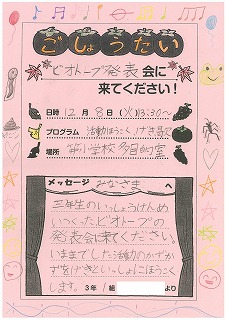 ごしょうたい
ビオトープ発表会に
来てください！
日時 12月8日(火)13:30～
プログラム 活動ほうこく げき 鳥
場所 小学校 多目的室
メッセージ みなさまへ
三年生のいっしょうけんめ
いつくったビオトープの
発表会に来てください。
いままでした活動のかずか
ずをげきといっしょにほうこく
します。 3年1組 より